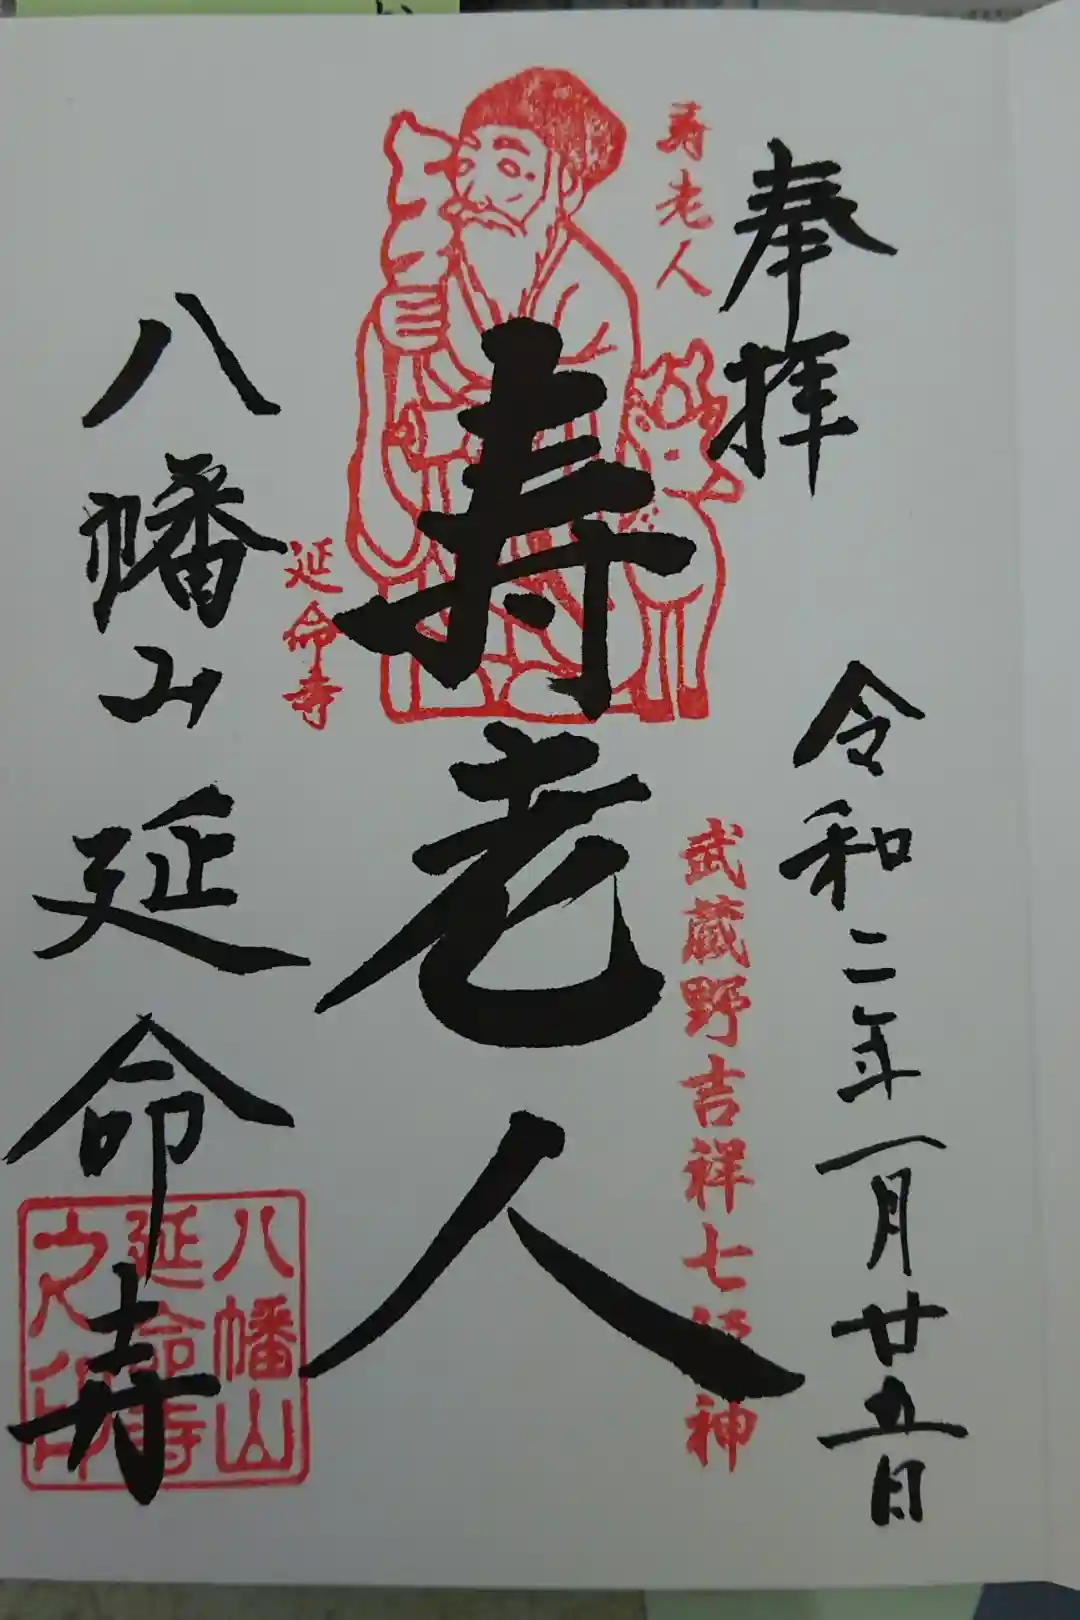 奉拝
令和二年一月廿五日
寿老人
武蔵野吉祥七福神
寿老人
延命寺
八幡山延命寺
八幡山
延命寺
之印